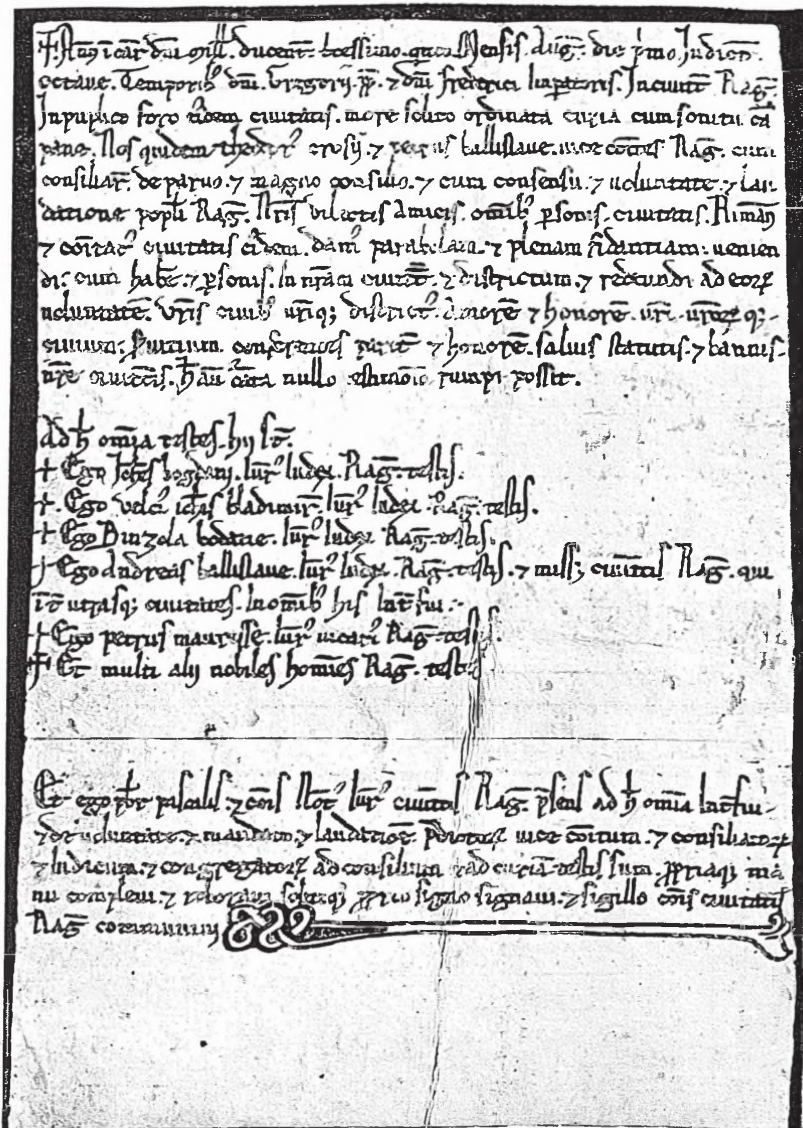 ✝ Ann̄ īcar̄ dnī mill̄. ducent̄. tcessimo. q̄nto Mensis. Auḡ. die p̄mo. Indicōn̄.
octaue. Temporib᷒ dnī. Gregorij. pp̄. ⁊ dnī frederici Impatoris. In ciuitt̄ Raḡ.
In puplico foro eiusdem ciuitatis. more solito ordinata curia cum sonitu cā
pane. Nos quidem theodor᷒ crosij. ⁊ petrus ballislaue. uice cōites Raḡ. cum
consiliar̄. de paruo. ⁊ magno consilio. ⁊ cum consensu. ⁊ uoluntate. ⁊ lau
datione popl̄i Raḡ. Nrīs dilectis Amicis. omīb᷒ p̄sonis. ciuitatis. Arimān̄
⁊ comitat᷒ ciuitatis eiusdem. dam᷒ parabolam. ⁊ plenam fidantiam: uenien
di: cum habē. ⁊ p̄sonis. In nrām ciuitt̄. ⁊ districtum. ⁊ redeundi ad eoꝝ
uoluntatē. Vrīs ciuib᷒ urīq; district᷒ Amorē ⁊ honorē. urī. urōꝝ q;
ciuium; seruitium. conseruabimus ⁊ honorē. saluis statutis. ⁊ bānnis.
nrē ciuitatis. Hāc carta nullo testimonio rumpi possit.
Ad h̄ omīa testes. hij st̄.
+ Ego Johēs bogdani. Iur᷒ Iudex. Raḡ. testis.
+. Ego velci Johīs bladimir̄. Iur᷒ Iudex. Raḡ. testis.
+ Ego Binzola bodatie. Iur᷒ Iudex. Raḡ. testis.
+ Ego Andreas ballislaue. Iur᷒ Iudex. Raḡ. testis. ⁊ miss; ciuitatis Raḡ. qui
īt̄ utrasq; ciuitates. In omīb᷒ his Int̄fui.
+ Ego petrus mauresse. Iur᷒ uicari᷒ Raḡ. testis.
✝ Et multi alij nobiles homīes Raḡ. testes
Et ego p̄br̄ pascalis. ⁊ cōis Not᷒ Iur᷒ ciuitatis Raḡ. p̄sens ad h̄ omīa Int̄fui.
⁊ de uoluntate. ⁊ mandato. ⁊ laudatiōē. p̄dictoꝝ uice cōitum. ⁊ consiliatoꝝ
⁊ Iudicum. ⁊ congregatoꝝ ad consilium ⁊ ad curiā. testis sum. ꝓpriaq; ma
nu compleui. ⁊ roboraui. solitoq; ꝓprio signo signaui. ⁊ sigillo cōis ciuitatis
Raḡ communiui